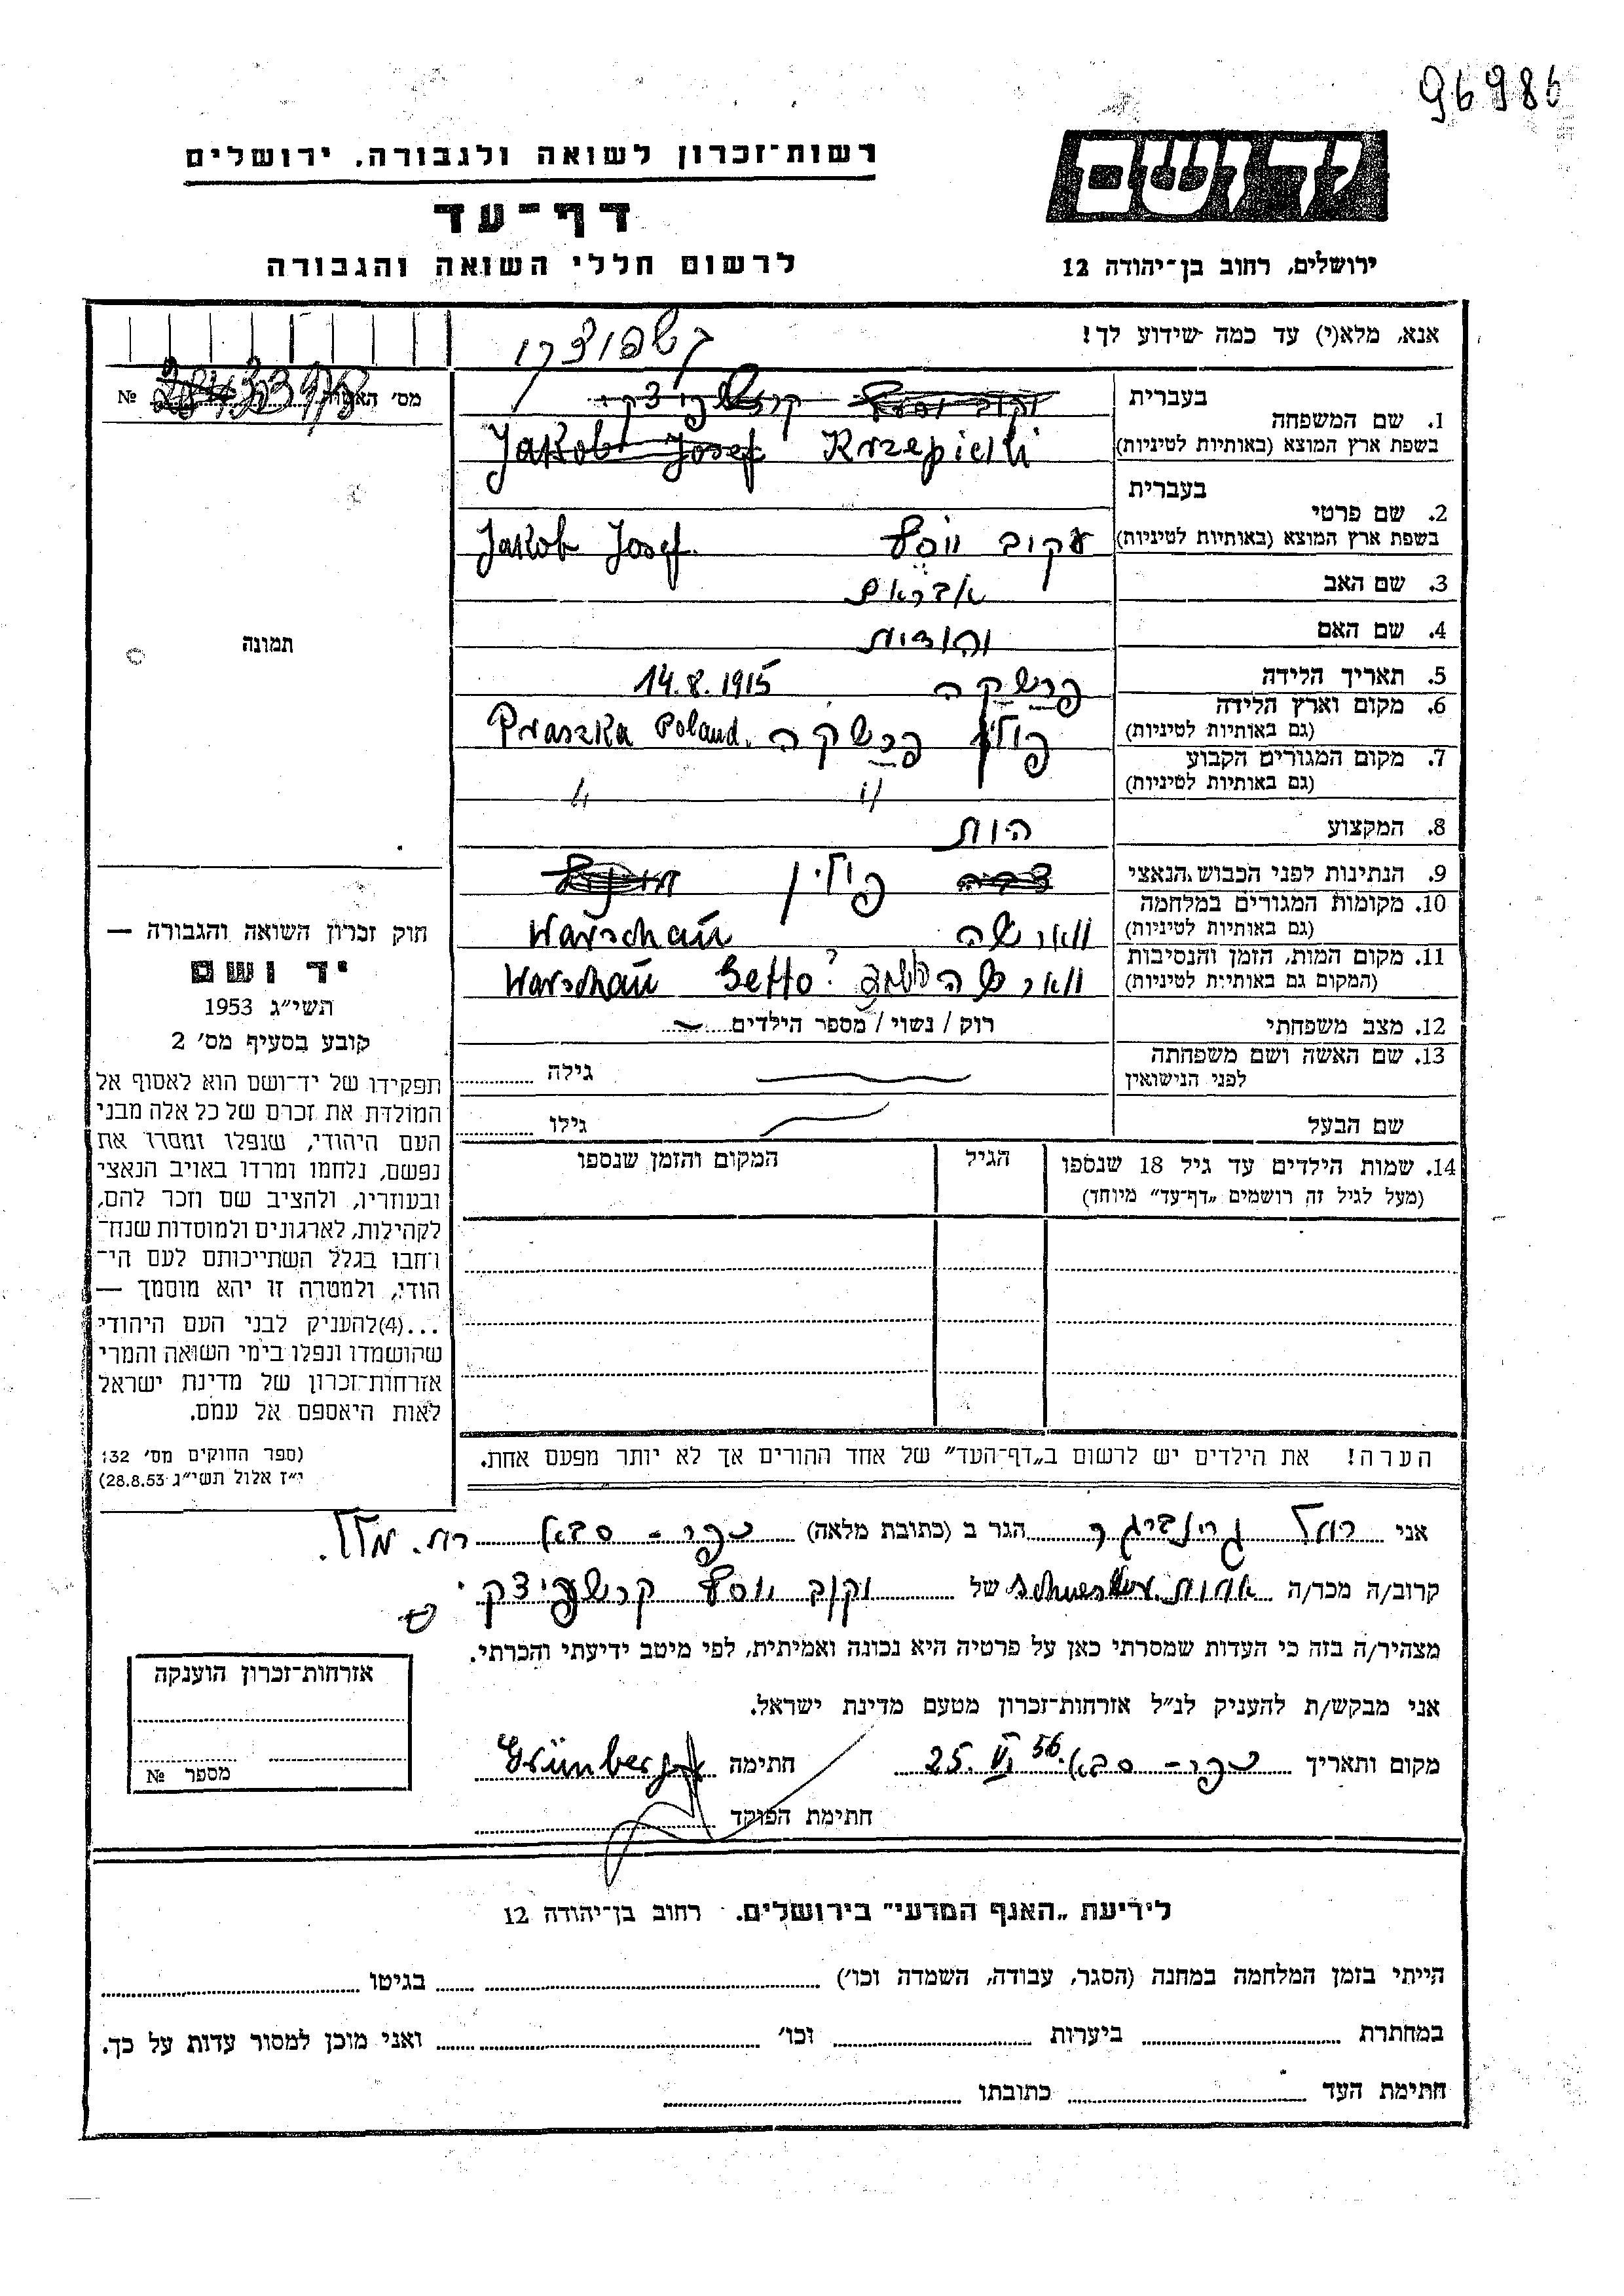 96986
רשות־זכרון לשואה ולגבורה, ירושלים
יד ושם
דף־עד
לרשום חללי השואה והגבורה
ירושלים, רחוב בן־יהודה 12
אנא, מלא(י) עד כמה שידוע לך!
מס׳ №
1. שם המשפחה
בעברית
בשפת ארץ המוצא (באותיות לטיניות) Jakob Josef Krzepicki
2. שם פרטי
בעברית
בשפת ארץ המוצא (באותיות לטיניות) Jakob Josef
3. שם האב
4. שם האם
5. תאריך הלידה פרשקה 14.8.1915
6. מקום וארץ הלידה
(גם באותיות לטיניות) פולין פרשקה Praszka Poland.
7. מקום המגורים הקבוע
(גם באותיות לטיניות) 〃 〃
8. המקצוע
9. הנתינות לפני הכבוש הנאצי פולין
10. מקומות המגורים במלחמה
(גם באותיות לטיניות) ווארשה Warschaü
11. מקום המות, הזמן והנסיבות
(המקום גם באותיות לטיניות) ווארשה Warschaü Getto?
12. מצב משפחתי רוק / נשוי / מספר הילדים
13. שם האשה ושם משפחתה
לפני הנישואין גילה
שם הבעל גילו
14. שמות הילדים עד גיל 18 שנספו
(מעל לגיל זה רושמים „דף־עד” מיוחד)
הגיל
המקום והזמן שנספו
תמונה
חוק זכרון השואה והגבורה —
יד ושם
תשי״ג 1953
קובע בסעיף מס׳ 2
תפקידו של יד־ושם הוא לאסוף אל
המולדת את זכרם של כל אלה מבני
העם היהודי, שנפלו ומסרו את
נפשם, נלחמו ומרדו באויב הנאצי
ובעוזריו, ולהציב שם וזכר להם,
לקהילות, לארגונים ולמוסדות שנח־
רבו בגלל השתייכותם לעם הי־
הודי, ולמטרה זו יהא מוסמך —
...(4)להעניק לבני העם היהודי
שהושמדו ונפלו בימי השואה והמרי
אזרחות־זכרון של מדינת ישראל
לאות היאספם אל עמם.
(ספר החוקים מס׳ 132
י״ז אלול תשי״ג 28.8.53)
הערה! את הילדים יש לרשום ב„דף־העד” של אחד ההורים אך לא יותר מפעם אחת.
אני רחל גרינברגר הגר ב (כתובת מלאה) כפר־סבא
קרוב/ה מכר/ה אחות של יעקב יוסף קרשפיצקי
מצהיר/ה בזה כי העדות שמסרתי כאן על פרטיה היא נכונה ואמיתית, לפי מיטב ידיעתי והכרתי.
אני מבקש/ת להעניק לנ״ל אזרחות־זכרון מטעם מדינת ישראל.
מקום ותאריך כפר־סבא 25. VI 56. חתימה
חתימת הפוקד
אזרחות־זכרון הוענקה
מספר №
לידיעת „האגף המדעי” בירושלים. רחוב בן־יהודה 12
הייתי בזמן המלחמה במחנה (הסגר, עבודה, השמדה וכו׳) בגיטו
במחתרת ביערות וכו׳ ואני מוכן למסור עדות על כך.
חתימת העד כתובתו